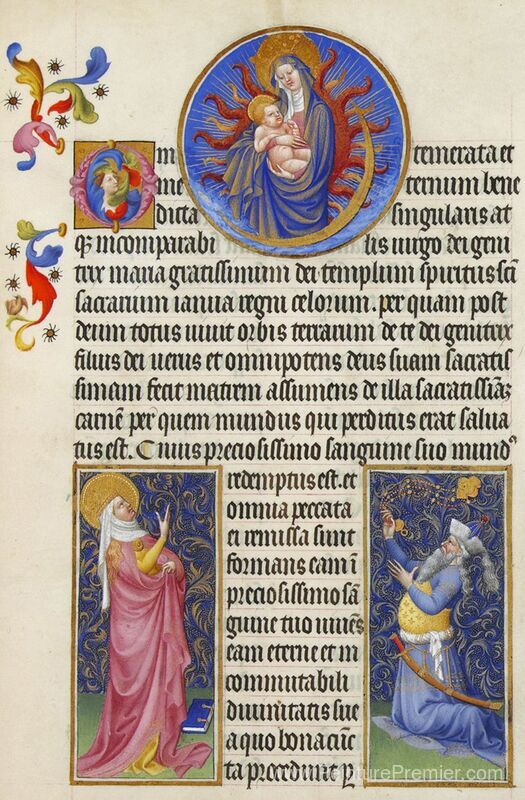 O m temerata et
me ternum bene
dicta singularis at
qꝫ incomparabi lis uirgo dei geni
trix maria gratissimum dei templum spiritus sc̄i
sacrarium ianua regni celorum. per quam post
deum totus uiuit orbis terrarum de te dei genitrix
filius dei uerus et omnipotens deus suam sacratis
simam fecit matrem assumens de illa sacratissiā
carnē per quem mundus qui perditus erat salua
tus est. Cuius preciosissimo sanguine suo mund⁹
redemptus est. et
omnia peccata
ei remissa sunt
formans eam ī
preciosissimo sā
guine tuo
eam eterne et in
commutabili
diuinitatis sue
a quo bona
ta procedunt
PeinturePremier.com